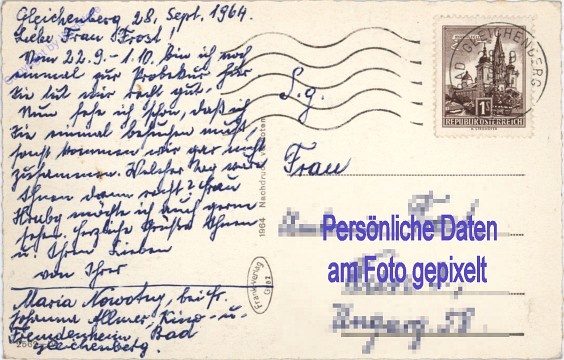 Gleichenberg 28. Sept. 1964.
Liebe Frau Frost!
Vom 22.9. - 1.10. bin ich noch
einmal zur Probekur hier.
Sie tut mir recht gut.
Nun sehe ich schon, daß ich
Sie einmal besuchen muß,
sonst kommen wir gar nicht
zusammen. Welcher Tag wäre
Ihnen dann recht? Frau
Hruby möchte ich auch gerne
sehen. Herzliche Grüße Ihnen
u. Ihren Lieben
von Ihrer
Maria Nowotny, bei Fr.
Johanna Allmer, Kino- u.
Fremdenheim, Bad
Gleichenberg.
1964 Nachdruck verboten
Frankverlag
S.g.
Frau
Persönliche Daten
am Foto gepixelt
Ungarg 58.
BAD GLEICHENBERG
1S
REPUBLIK ÖSTERREICH